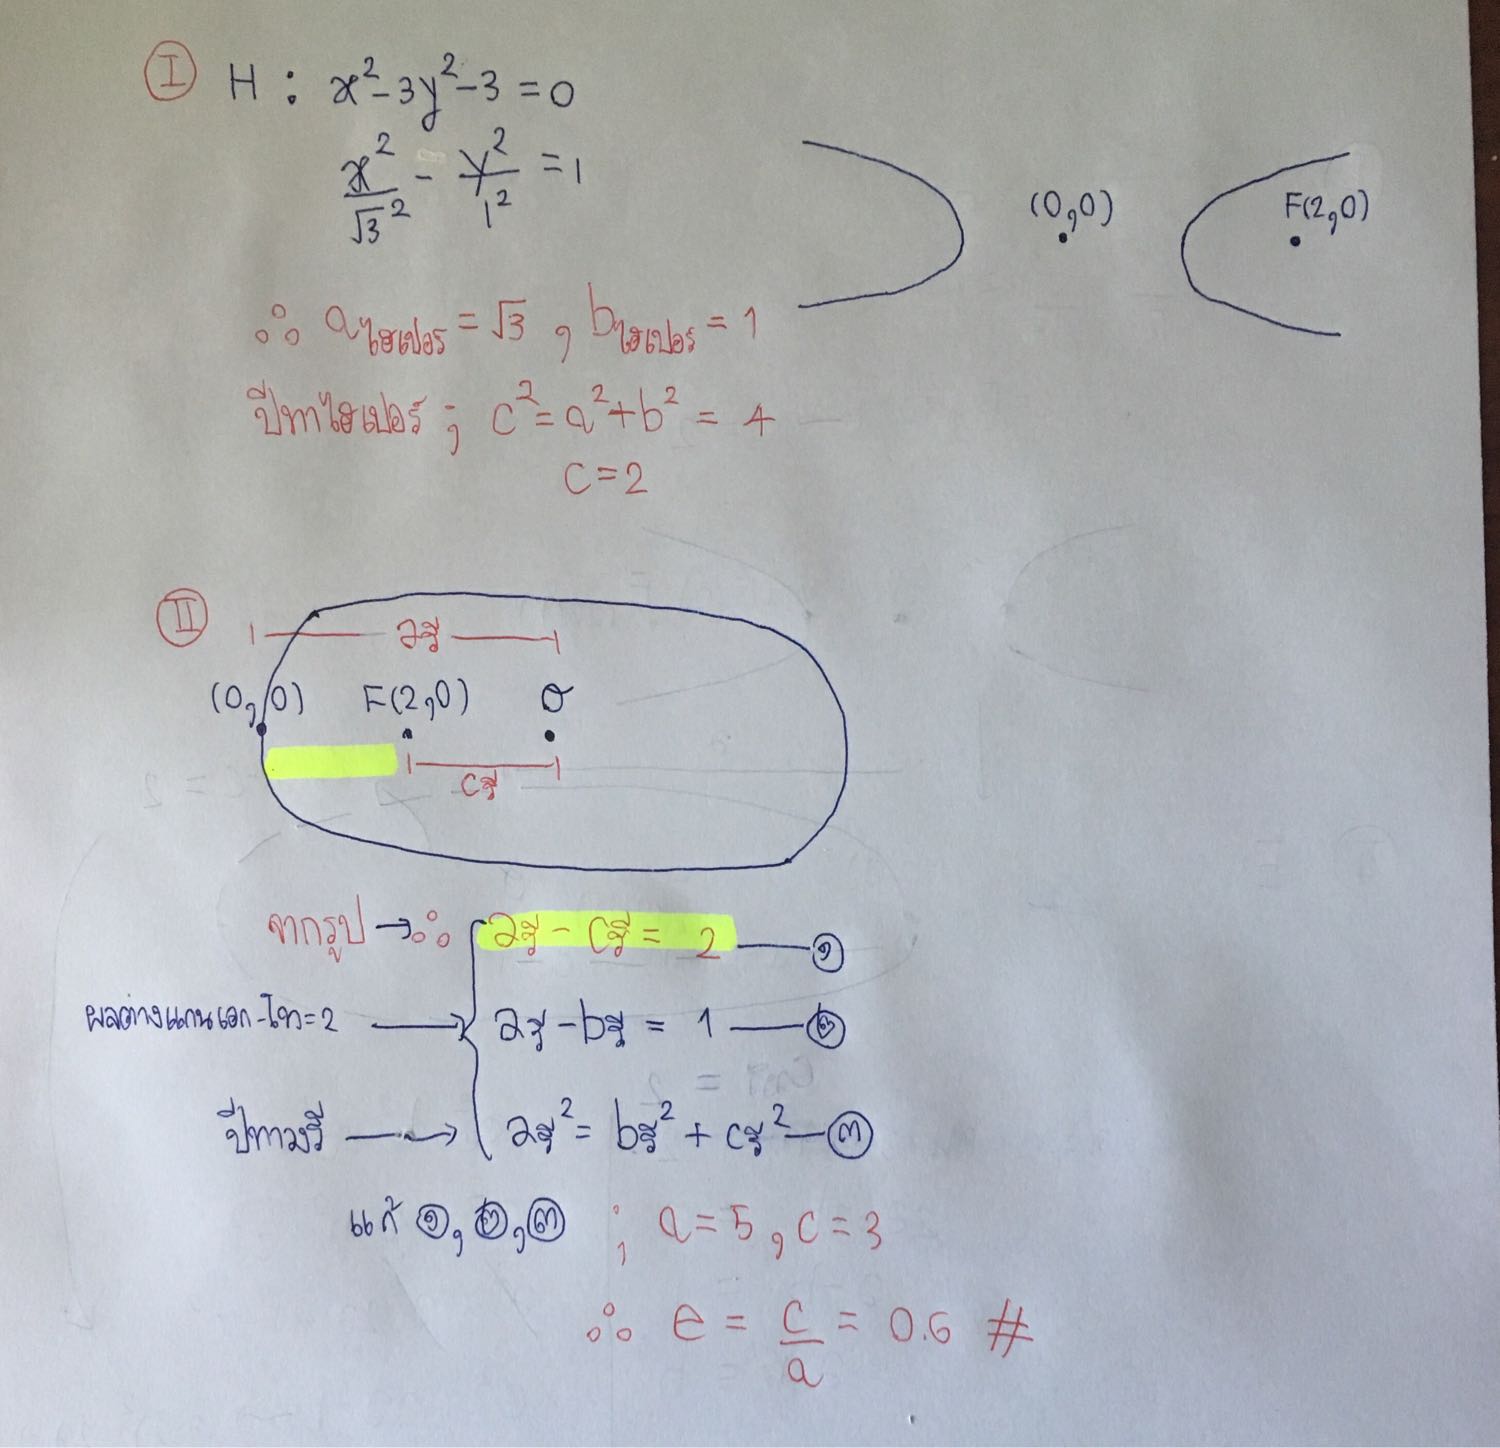 Ⅰ H : x²-3y²-3 = 0
x²/√3² - y²/1² = 1
(0,0)
F(2,0)
∴ aไฮเปอร์ = √3 , bไฮเปอร์ = 1
ปีทาไฮเปอร์ ; c² = a²+b² = 4
c = 2
Ⅱ
aรี
(0,0) F(2,0) O
cรี
จากรูป → ∴ aรี - cรี = 2 — ๑
ผลต่างแกนเอก-โท=2 → aรี - bรี = 1 — ๒
ปีทาวงรี → aรี² = bรี² + cรี² — ๓
แก้ ๑, ๒, ๓ ; a = 5 , c = 3
∴ e = c/a = 0.6 #